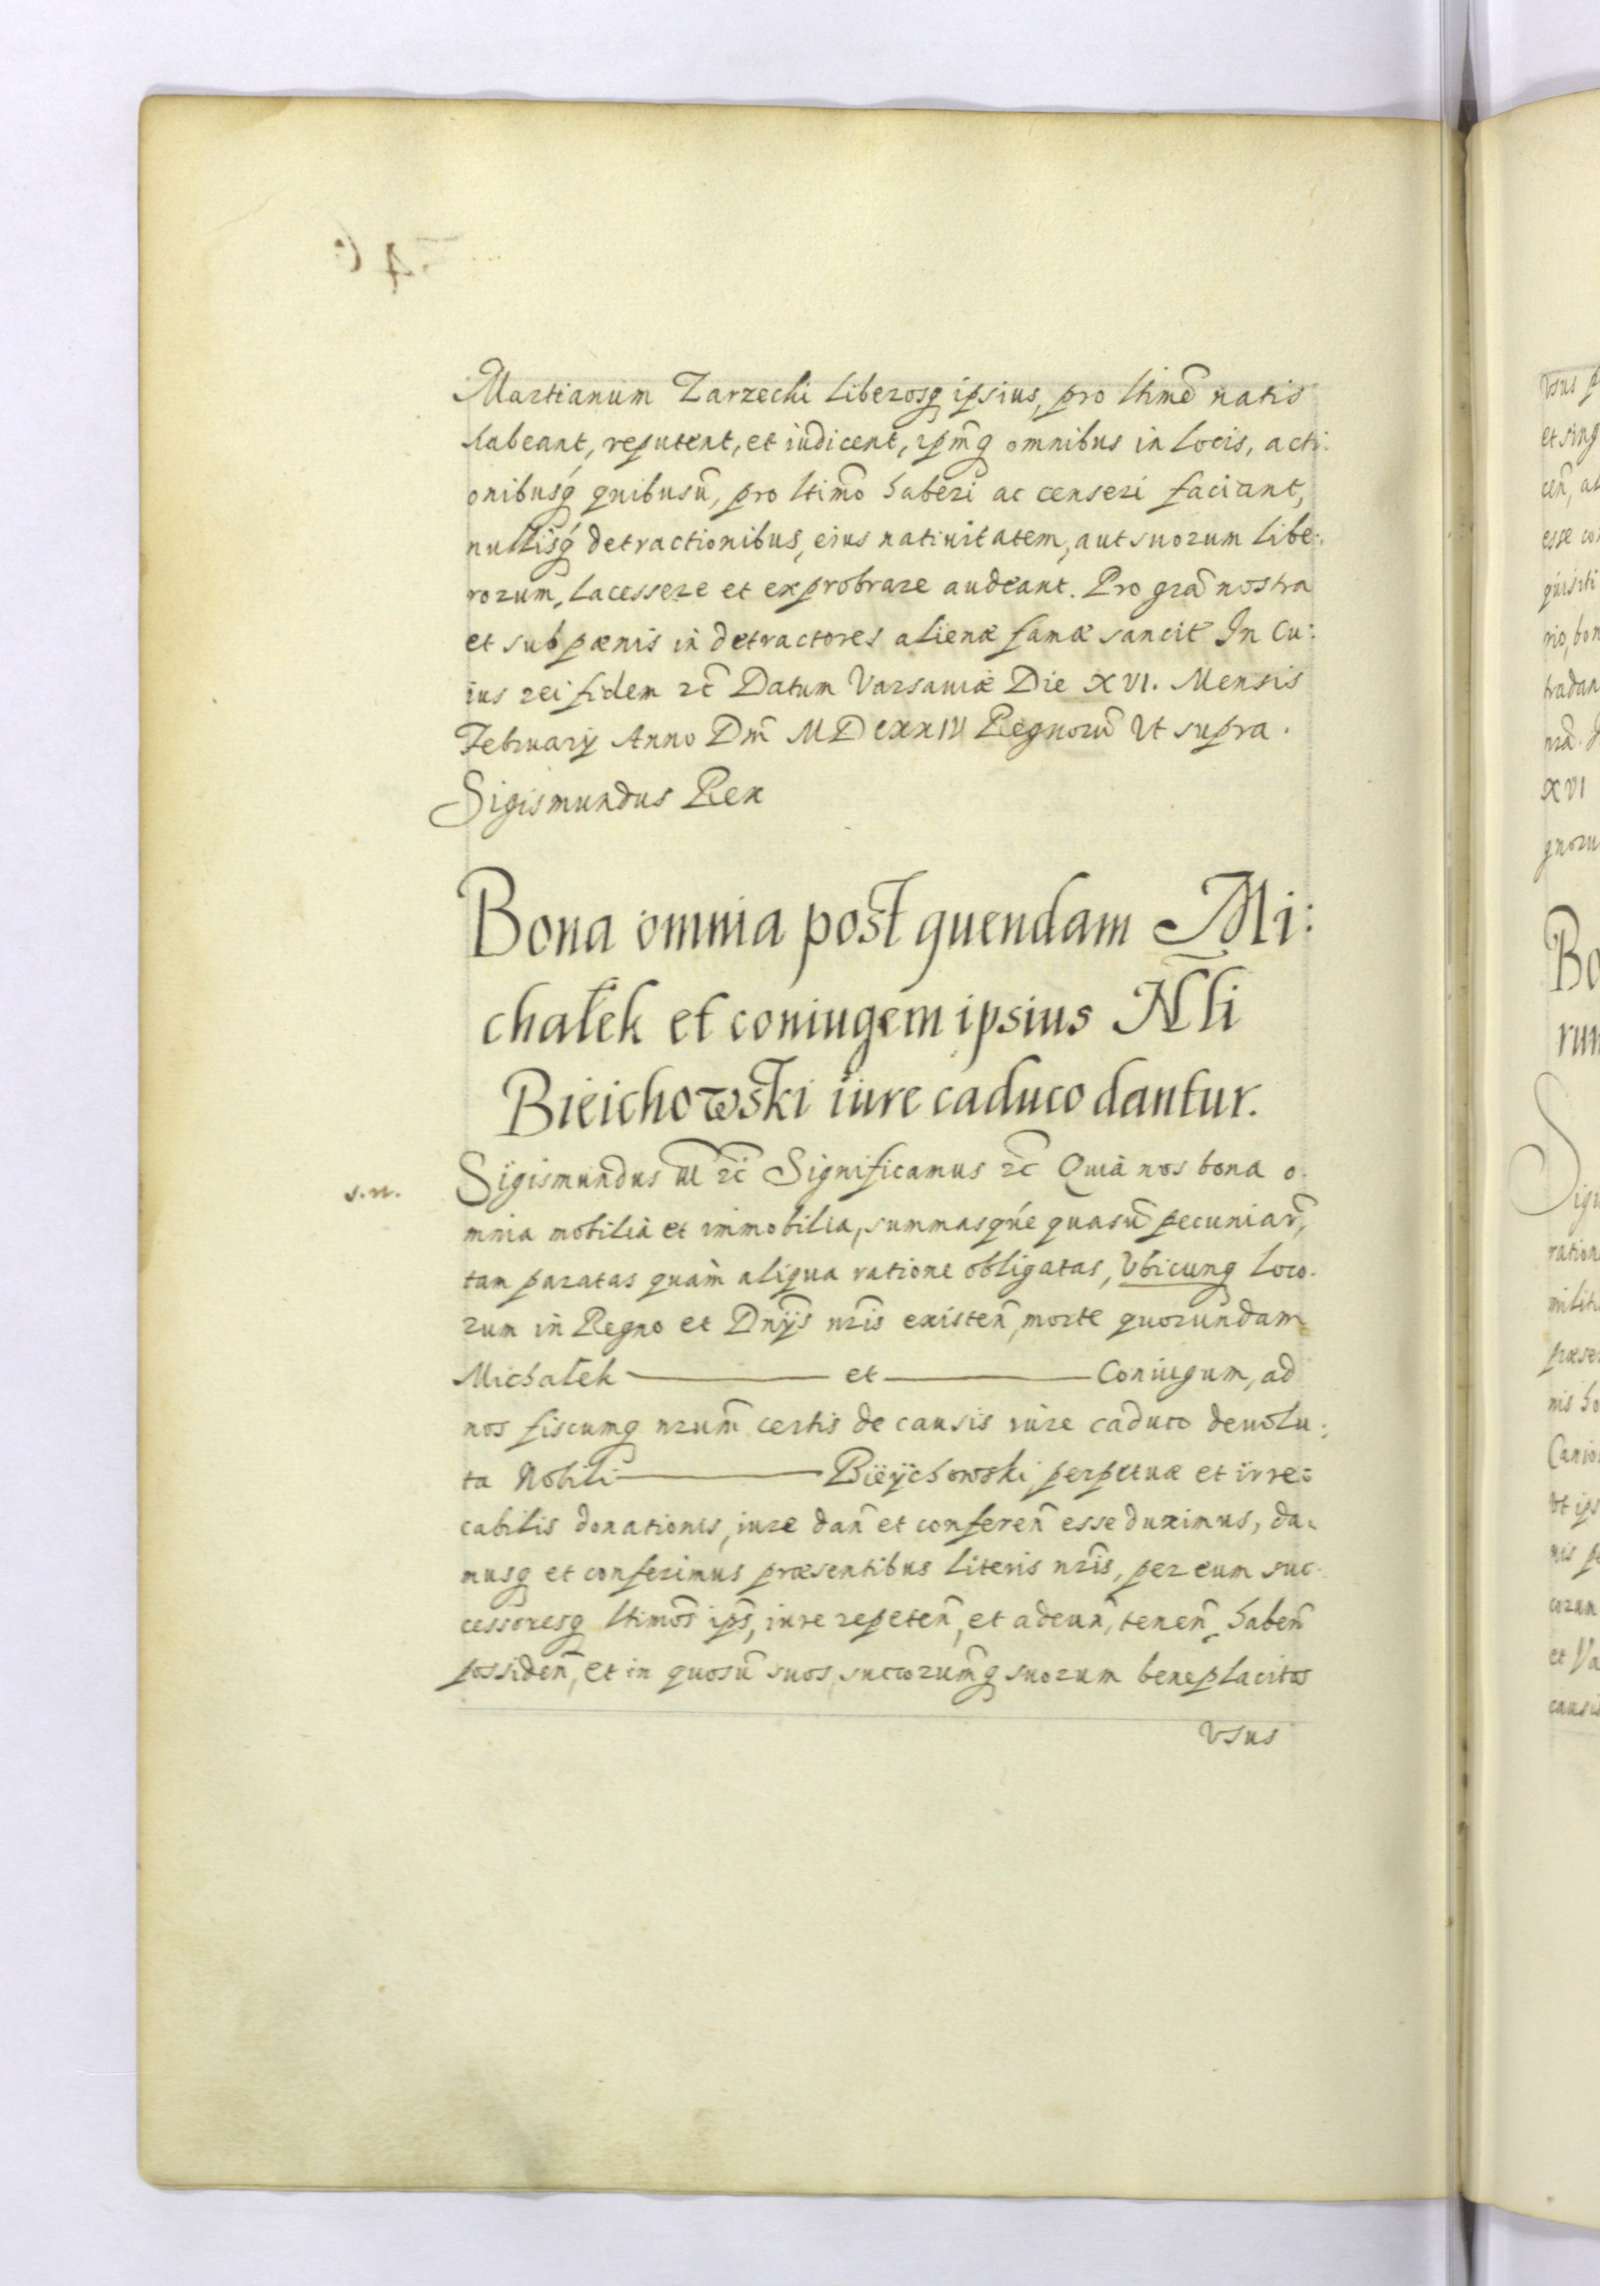 Martianum Zarzecki liberosq́ ipsius, pro ltimẽ natis
habeant, reputent, et iudicent, ipm̃q́ omnibus in locis, acti:
onibusq́ quibusũ, pro ltimõ haberi ac censeri faciant,
nullisq́ detractionibus, eius natiuitatem, aut suorum libe:
rorum, lacessere et exprobrare audeant. Pro grã nostra
et sub pœnis in detractores alienæ famæ sancit̃ In Cu:
ius rei fidem ꝛc̃ Datum Varsauiæ Die XVI. Mensis
February Anno Dm̃ MDCXXIV Regnorũ Vt supra.
Sigismundus Rex
Bona omnia post quendam Mi:
chałek et coniugem ipsius Nl̃i
Bieichowski iure caduco dantur.
s.n.
Sigismundus III ꝛc̃ Significamus ꝛc̃ Quià nos bona o:
mnia mobilia et immobilia, summasq́ue quasũ pecuniar̃,
tam paratas quàm aliqua ratione obligatas, Vbicunq́ loco:
rum in Regno et Dnÿs nr̃is existeñ, morte quorundam
Michałek ——— et ——— Coniugum, ad
nos fiscumq́ nrum̃ certis de causis iure caduco deuolu:
ta Nobili ——— Bieÿchowski, perpetuæ et irre:
cabilis donationis, iure dañ et confereñ esse duximus, da:
musq́ et conferimus præsentibus literis nr̃is, per eum suc:
cessoresq́ ltimõs ips̃, iure repeteñ, et adeuñ, teneñ, habeñ
possideñ, et in quosũ suos, succorum̃q́ suorum beneplacitos
vsus